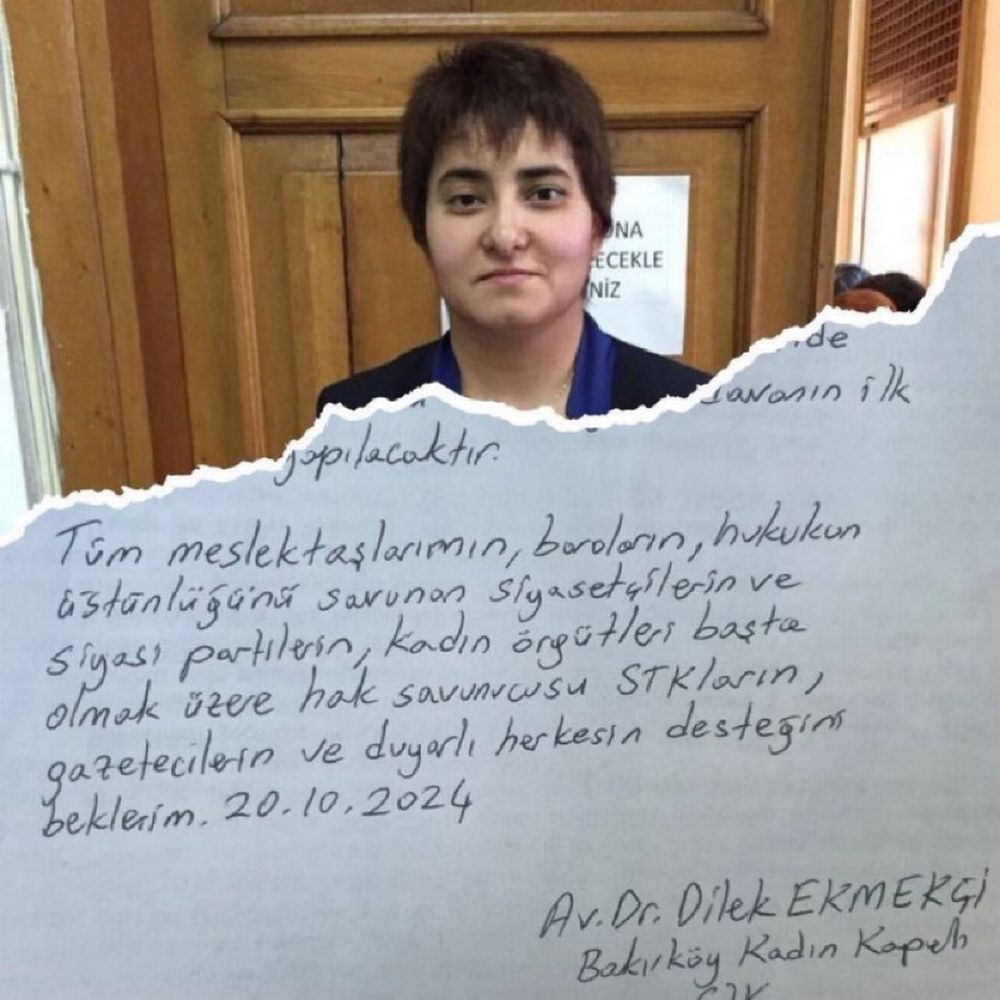 ONA
ECEKLE
NİZ
de
davanın ilk
yapılacaktır.
Tüm meslektaşlarımın, baroların, hukukun
üstünlüğünü savunan siyasetçilerin ve
siyasi partilerin, kadın örgütleri başta
olmak üzere hak savunucusu STKların,
gazetecilerin ve duyarlı herkesin desteğini
beklerim. 20.10.2024
Av. Dr. Dilek EKMEKÇİ
Bakırköy Kadın Kapalı